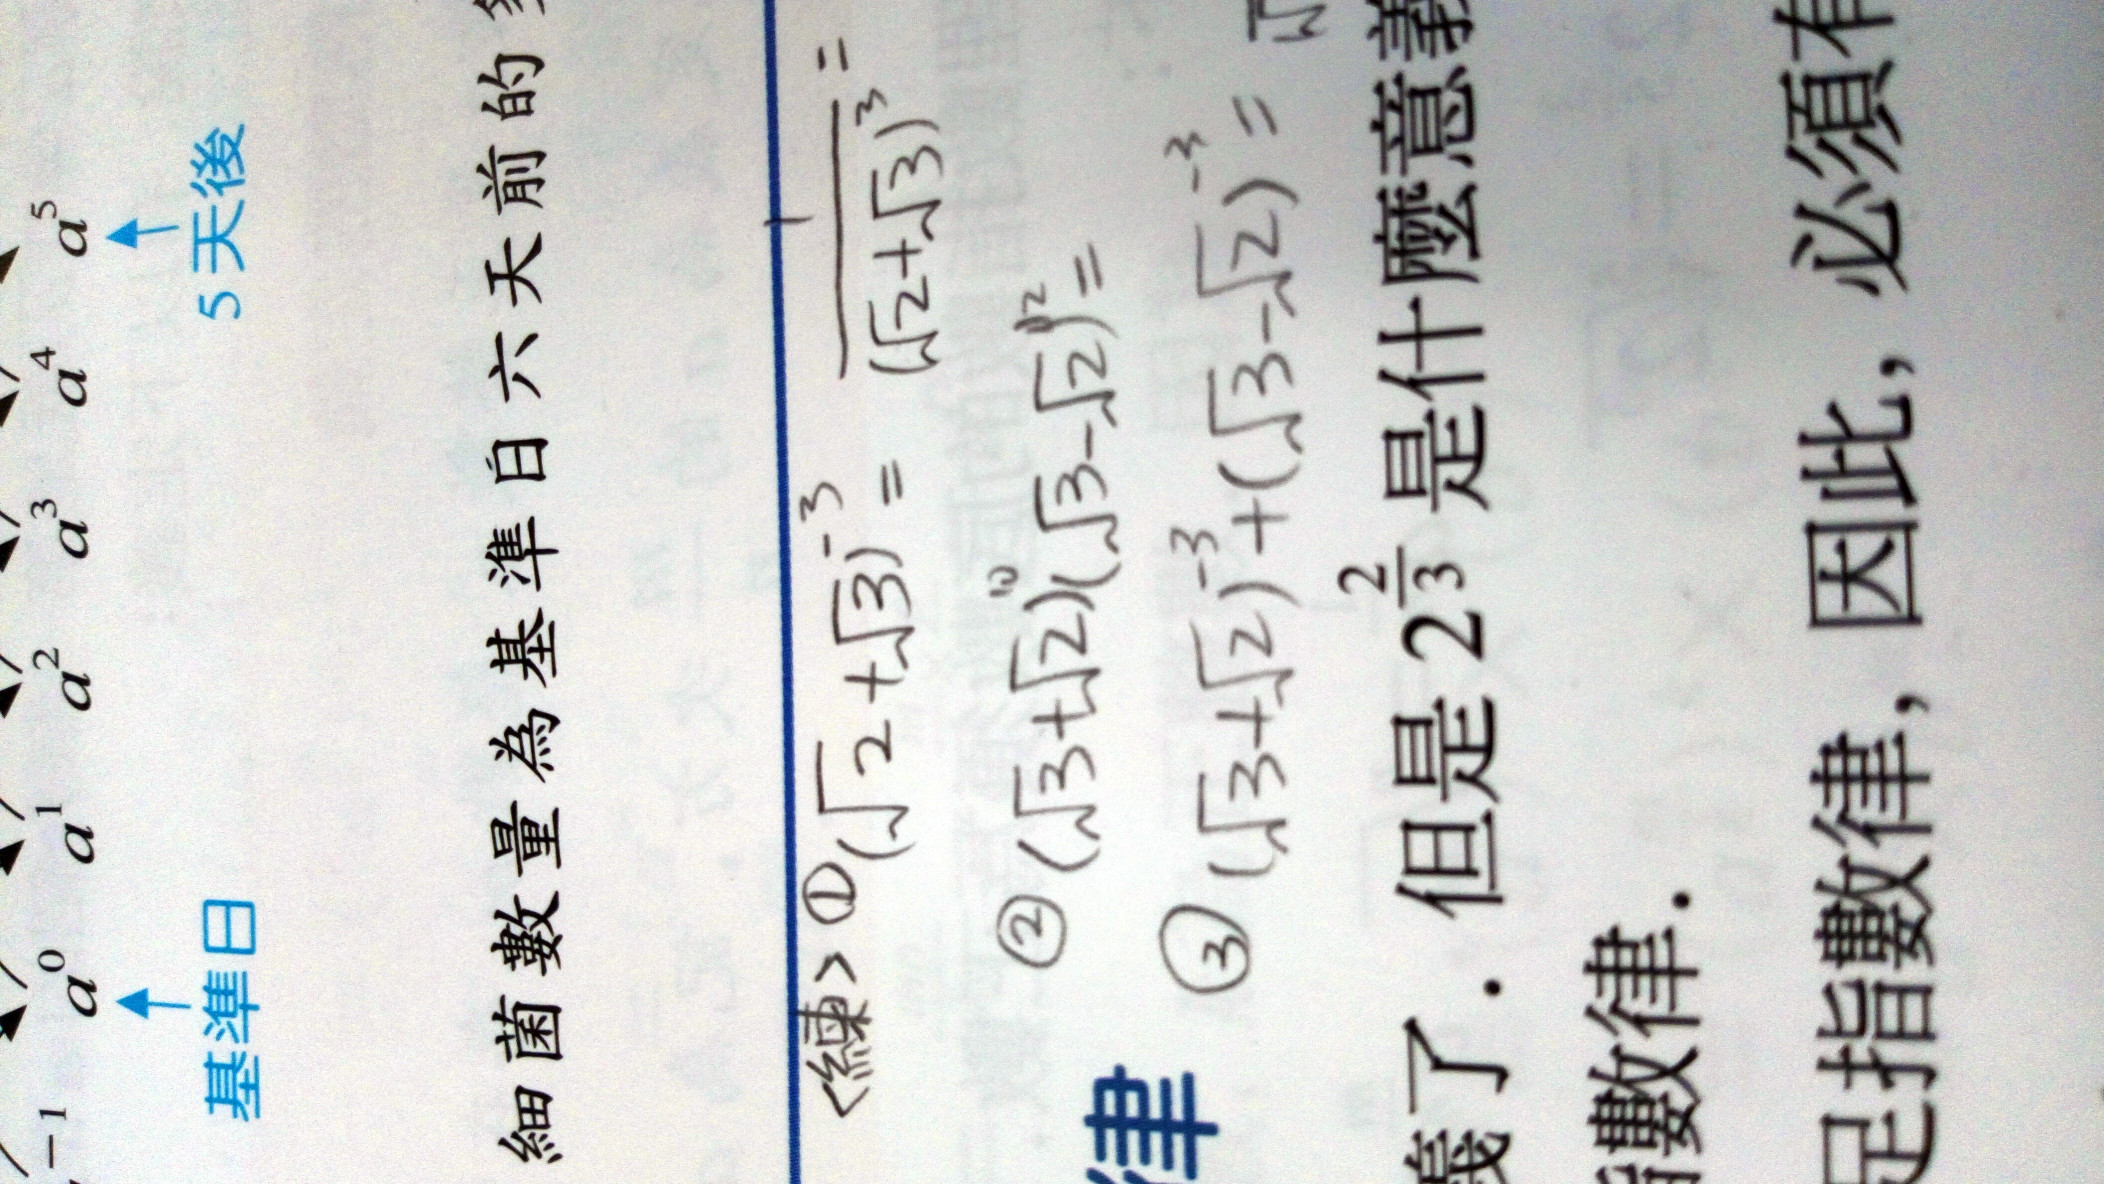 −1 a⁰ a¹ a² a³ a⁴ a⁵
基準日 5 天後
細菌數量為基準日六天前的
<練> ① (√2+√3)⁻³ = 1/(√2+√3)³ =
② (√3+√2)¹⁰(√3−√2)¹² =
③ (√3+√2)⁻³+(√3−√2)⁻³ =
律
義了．但是 2^(2/3) 是什麼意義
指數律．
足指數律, 因此, 必須有